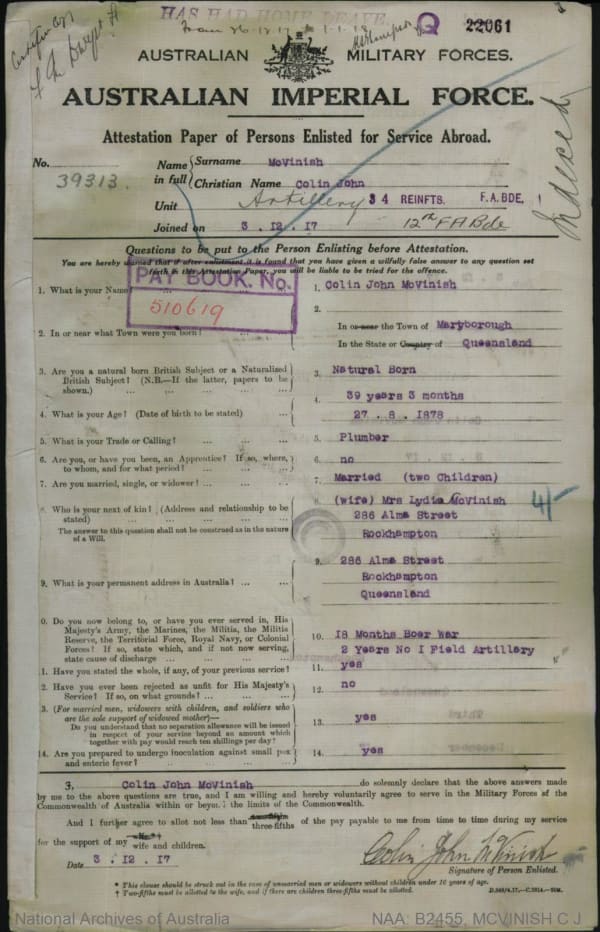 HAS HAD HOME LEAVE.
From 26.12.17
Q 22061
AUSTRALIAN MILITARY FORCES.
AUSTRALIAN IMPERIAL FORCE.
Indexed
Attestation Paper of Persons Enlisted for Service Abroad.
No. 39313.
Name in full
Surname McVinish
Christian Name Colin John
Unit Artillery 34 REINFTS. F.A.BDE.
Joined on 3.12.17 12th F A Bde
Questions to be put to the Person Enlisting before Attestation.
You are hereby warned that if after enlistment it is found that you have given a wilfully false answer to any question set
forth in this Attestation Paper, you will be liable to be tried for the offence.
PAY BOOK. No.
510619
1. What is your Name? ... 1. Colin John McVinish
2.
2. In or near what Town were you born? In or near the Town of Maryborough
In the State or Country of Queensland
3. Are you a natural born British Subject or a Naturalized
British Subject? (N.B.—If the latter, papers to be
shown.) ... 3. Natural Born
4. What is your Age? (Date of birth to be stated) ... 4. 39 years 3 months
27.8.1878
5. What is your Trade or Calling? ... 5. Plumber
6. Are you, or have you been, an Apprentice? If so, where,
to whom, and for what period? ... 6. no
7. Are you married, single, or widower? ... 7. Married (two Children)
8. Who is your next of kin? (Address and relationship to be
stated) 8. (wife) Mrs Lydia McVinish 4/-
286 Alma Street
Rockhampton
The answer to this question shall not be construed as in the nature
of a Will.
9. What is your permanent address in Australia? ... 9. 286 Alma Street
Rockhampton
Queensland
0. Do you now belong to, or have you ever served in, His
Majesty's Army, the Marines, the Militia, the Militia
Reserve, the Territorial Force, Royal Navy, or Colonial
Forces? If so, state which, and if not now serving,
state cause of discharge ... 10. 18 Months Boer War
2 Years No I Field Artillery
1. Have you stated the whole, if any, of your previous service? 11. yes
2. Have you ever been rejected as unfit for His Majesty's
Service? If so, on what grounds? ... 12. no
3. (For married men, widowers with children, and soldiers who
are the sole support of widowed mother)—
Do you understand that no separation allowance will be issued
in respect of your service beyond an amount which
together with pay would reach ten shillings per day? 13. yes
14. Are you prepared to undergo inoculation against small pox
and enteric fever? ... 14. yes
I, Colin John McVinish do solemnly declare that the above answers made
by me to the above questions are true, and I am willing and hereby voluntarily agree to serve in the Military Forces of the
Commonwealth of Australia within or beyond the limits of the Commonwealth.
And I further agree to allot not less than three-fifths of the pay payable to me from time to time during my service
for the support of my wife and children.
Date 3.12.17
Colin John McVinish
Signature of Person Enlisted.
* This clause should be struck out in the case of unmarried men or widowers without children under 16 years of age.
† Two-fifths must be allotted to the wife, and if there are children three-fifths must be allotted.
National Archives of Australia
NAA: B2455, MCVINISH C J